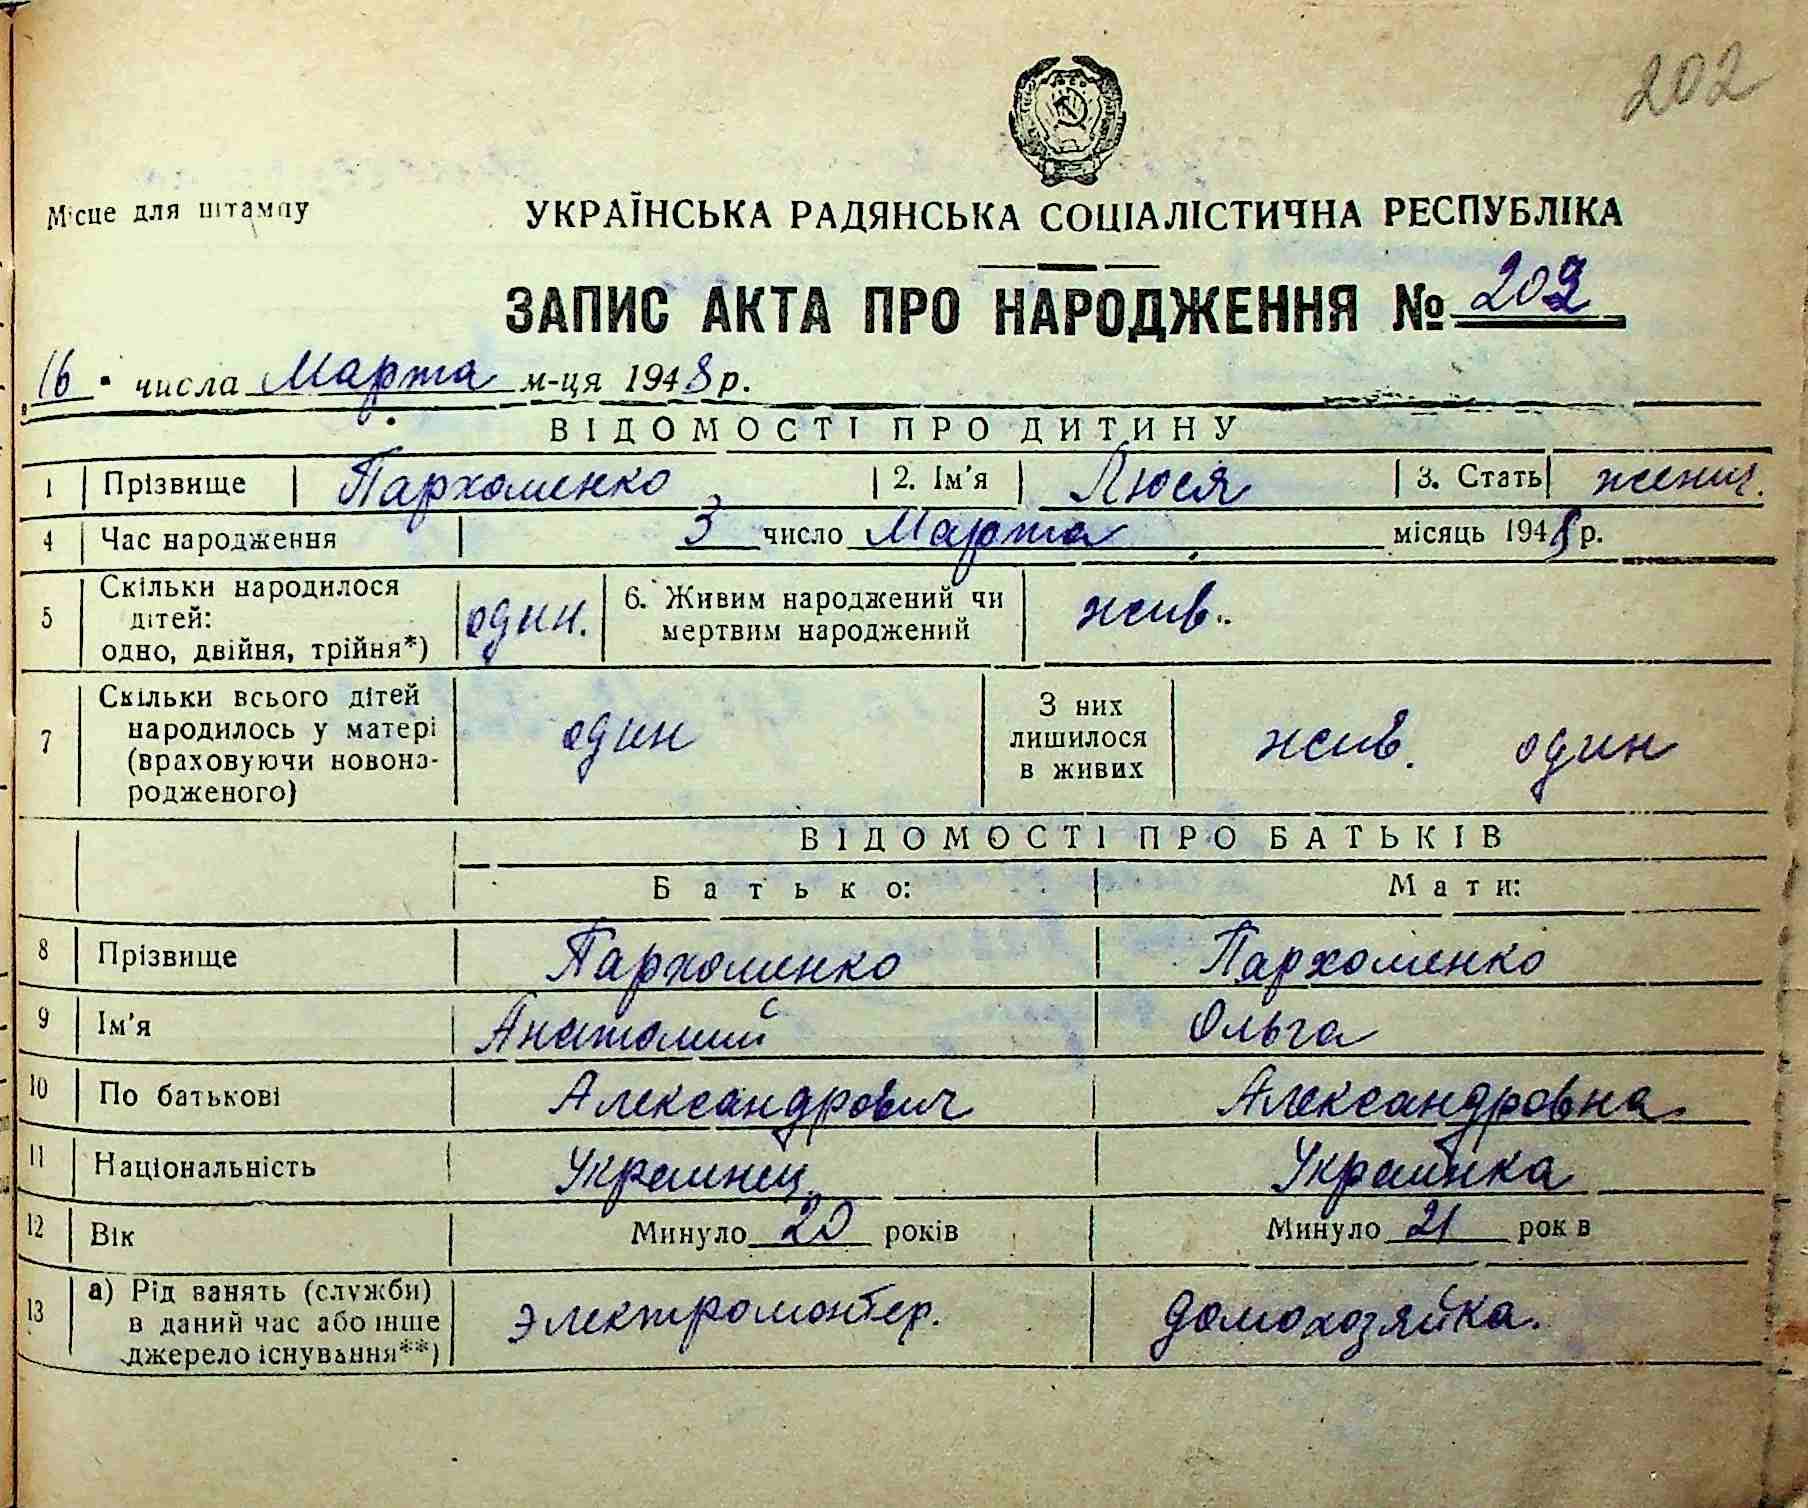 202
Місце для штампу
УКРАЇНСЬКА РАДЯНСЬКА СОЦІАЛІСТИЧНА РЕСПУБЛІКА
ЗАПИС АКТА ПРО НАРОДЖЕННЯ № 202
16 числа Марта м-ця 1948 р.
ВІДОМОСТІ ПРО ДИТИНУ
1 Прізвище Пархоменко 2. Ім'я Люся 3. Стать женск.
4 Час народження 3 число Марта місяць 1948 р.
5 Скільки народилося дітей: одно, двійня, трійня*) один. 6. Живим народжений чи мертвим народжений жив.
7 Скільки всього дітей народилось у матері (враховуючи новона-родженого) один З них лишилося в живих жив. один
ВІДОМОСТІ ПРО БАТЬКІВ
Батько: Мати:
8 Прізвище Пархоменко Пархоменко
9 Ім'я Анатолий Ольга
10 По батькові Александрович Александровна
11 Національність Украинец Украинка
12 Вік Минуло 20 років Минуло 21 рок в
13 а) Рід занять (служби) в даний час або інше джерело існування**) электромонтер. домохозяйка.